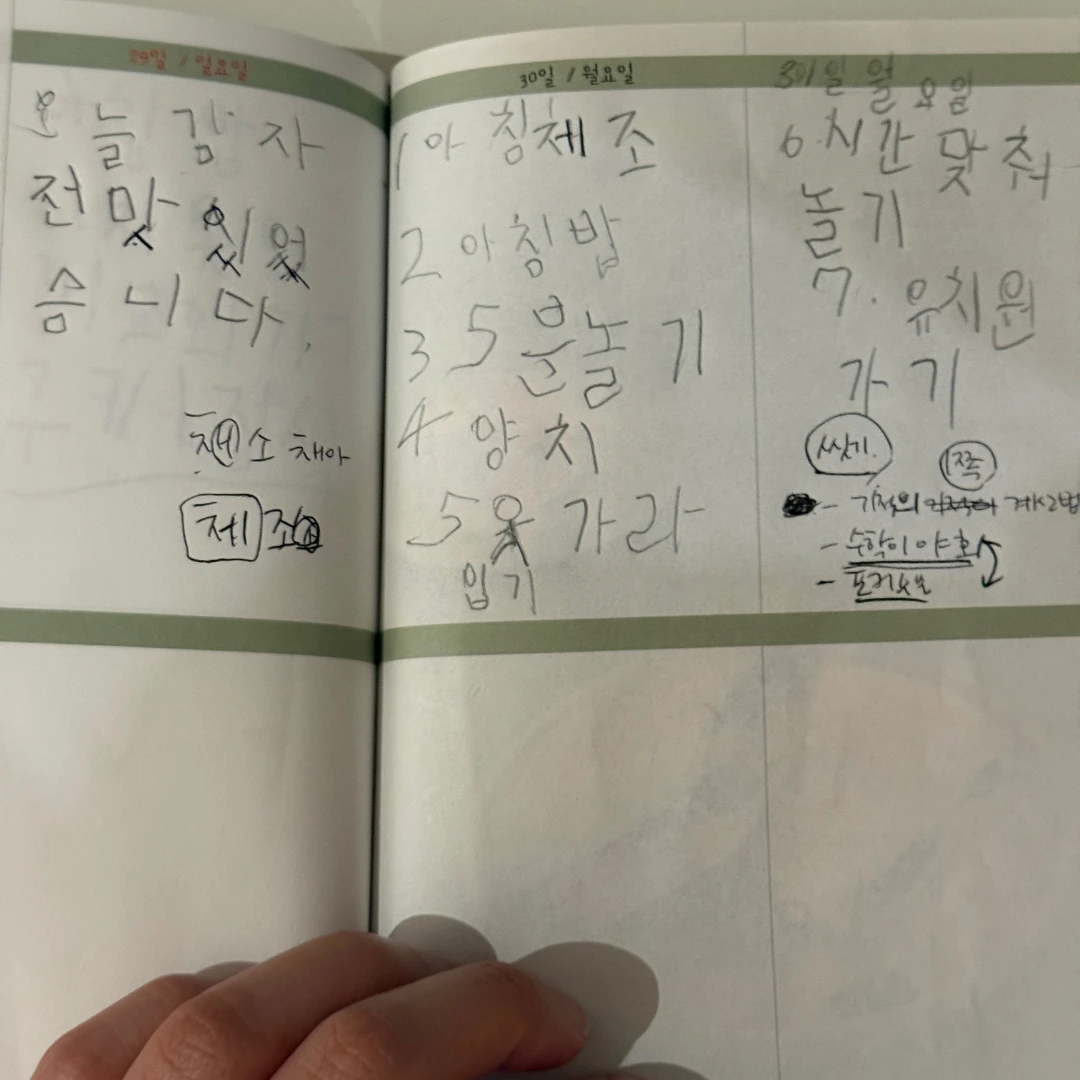 29일 / 일요일
오늘 감자
전 맛 있었
습니다.
체소 채아
체조
30일 / 월요일
1 아침체조
2 아침밥
3 5분놀기
4 양치
5 옷 가라
입기
30일 월요일
6. 시간 맞춰
놀기
7. 유치원
가기
씻기.
1쪽
- 기적의 계산법
- 수학이 야호